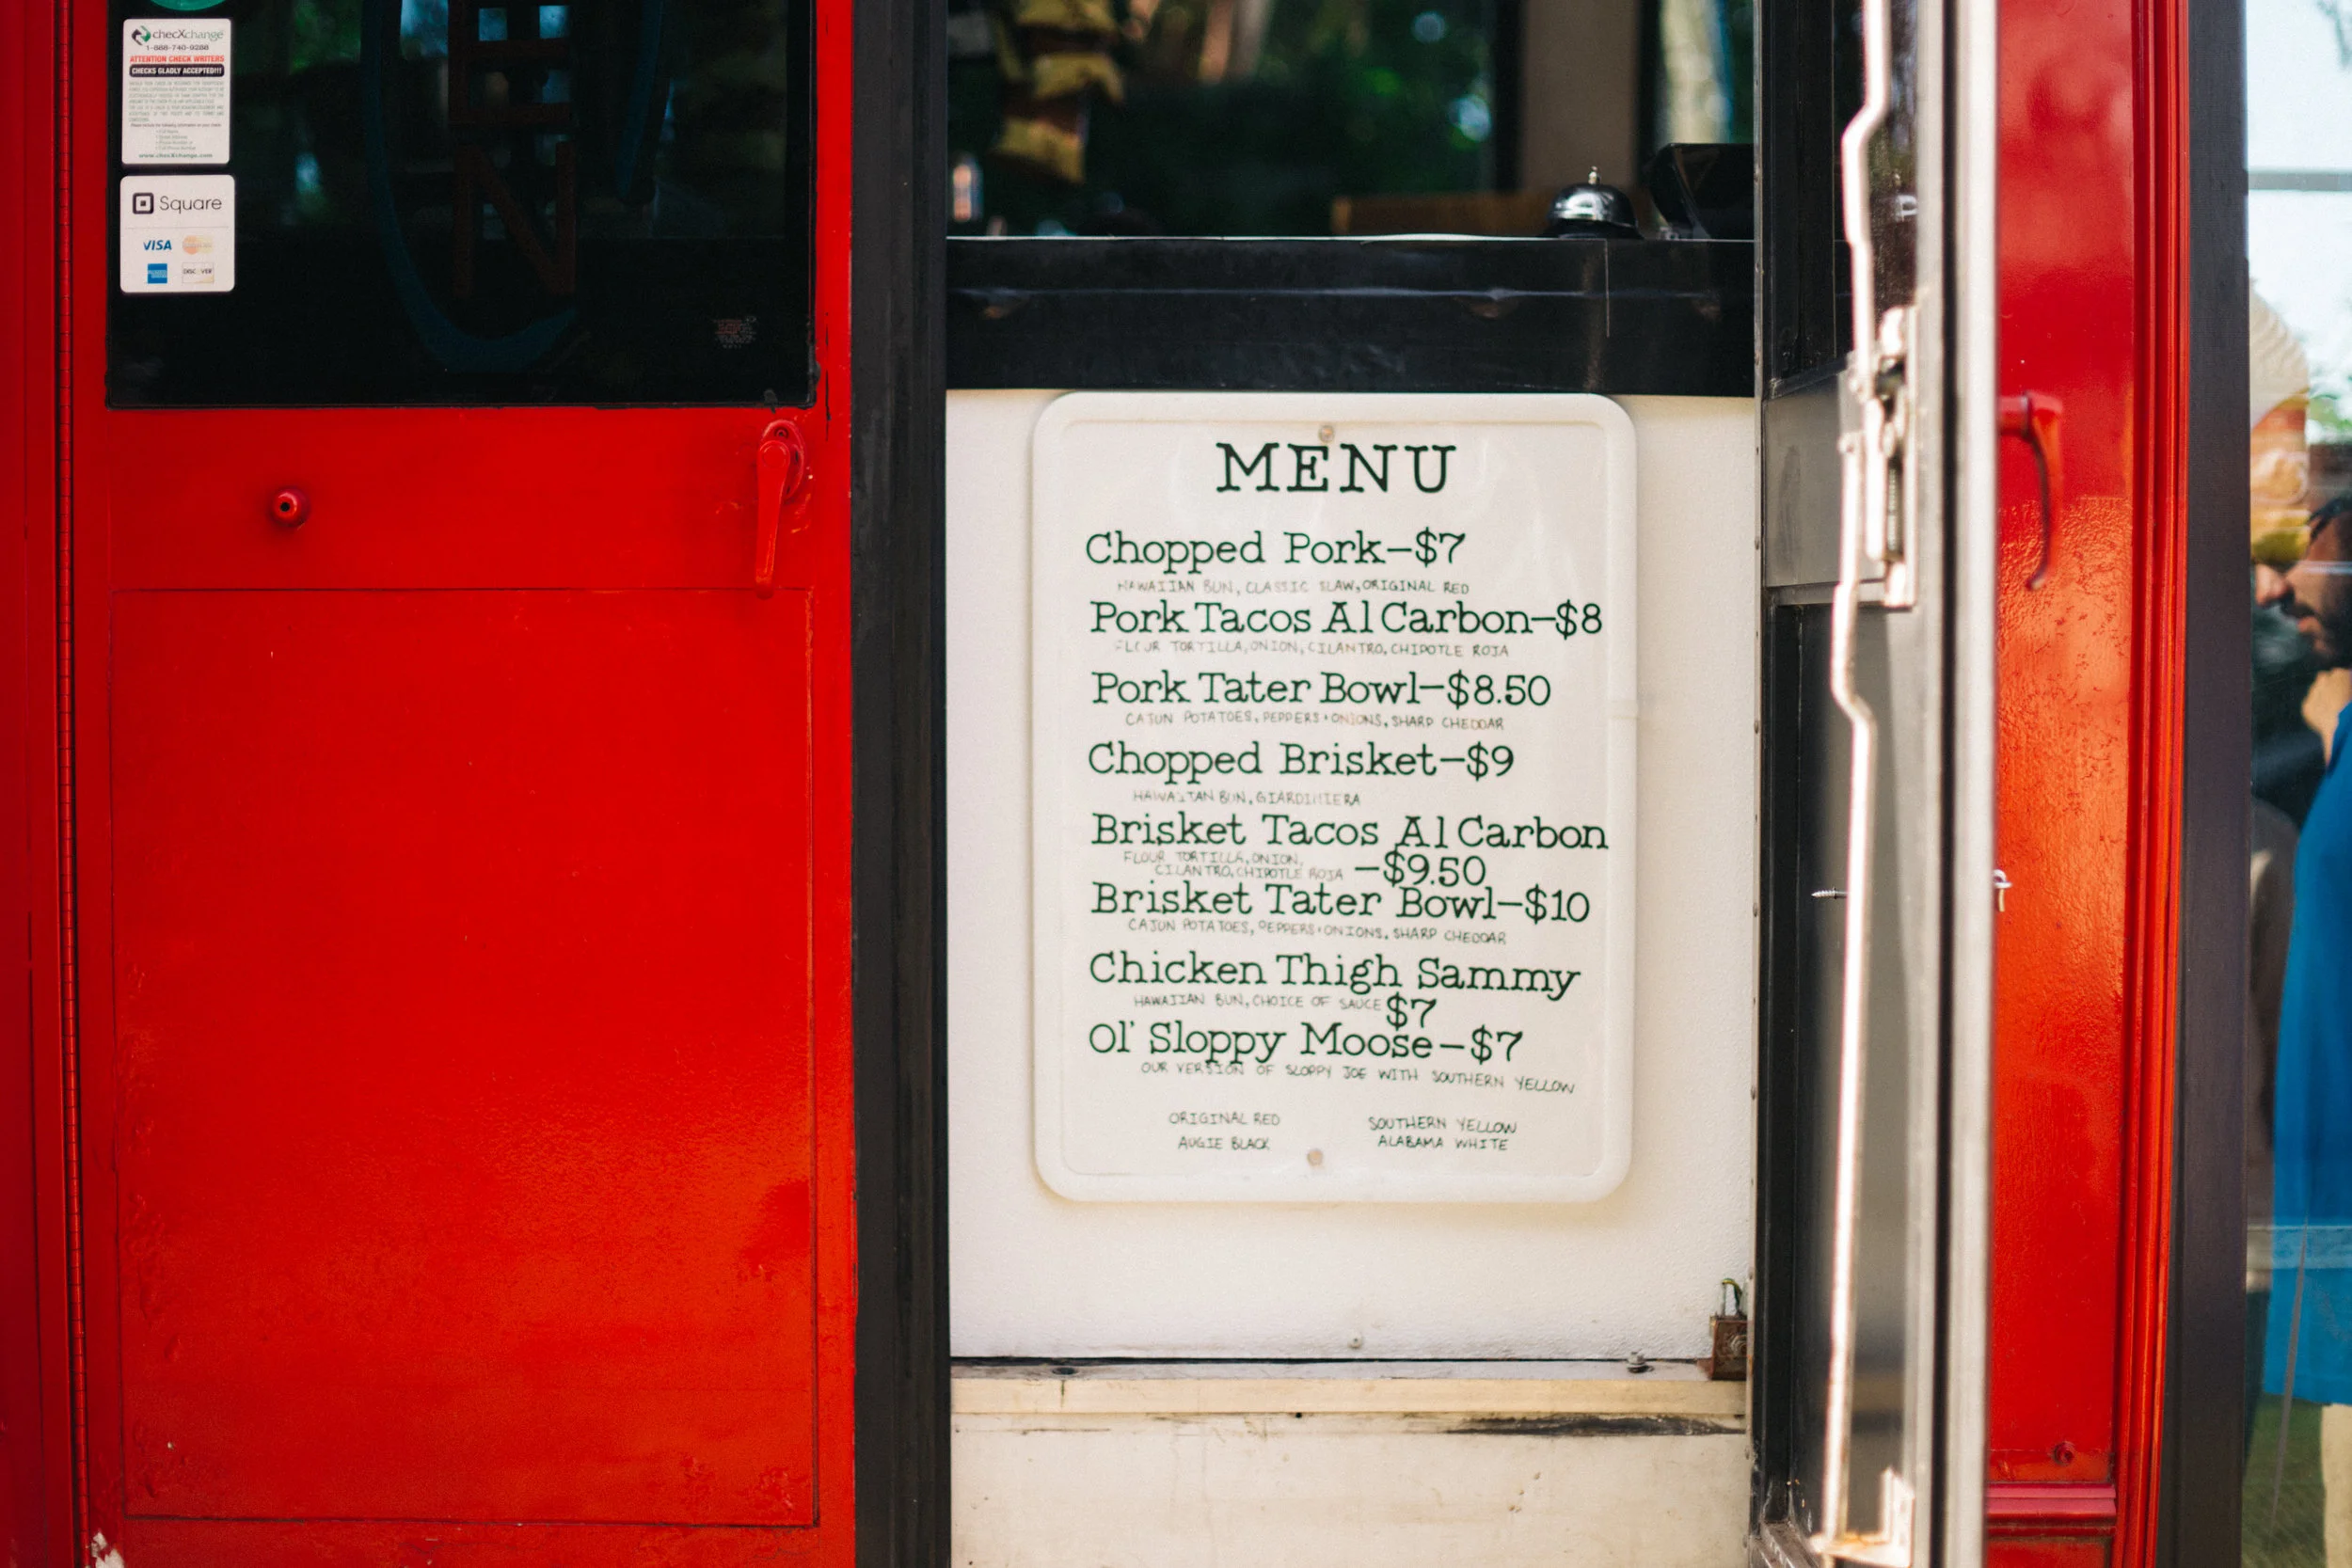 checXchange
1-888-740-9288
ATTENTION CHECK WRITERS
CHECKS GLADLY ACCEPTED!!!
www.checXchange.com
Square
VISA
DISCOVER
MENU
Chopped Pork-$7
HAWAIIAN BUN, CLASSIC SLAW, ORIGINAL RED
Pork Tacos Al Carbon-$8
FLOUR TORTILLA, ONION, CILANTRO, CHIPOTLE ROJA
Pork Tater Bowl-$8.50
CAJUN POTATOES, PEPPERS+ONIONS, SHARP CHEDDAR
Chopped Brisket-$9
HAWAIIAN BUN, GIARDINIERA
Brisket Tacos Al Carbon
FLOUR TORTILLA, ONION,
CILANTRO, CHIPOTLE ROJA -$9.50
Brisket Tater Bowl-$10
CAJUN POTATOES, PEPPERS+ONIONS, SHARP CHEDDAR
Chicken Thigh Sammy
HAWAIIAN BUN, CHOICE OF SAUCE $7
Ol' Sloppy Moose-$7
OUR VERSION OF SLOPPY JOE WITH SOUTHERN YELLOW
ORIGINAL RED SOUTHERN YELLOW
AUGIE BLACK ALABAMA WHITE